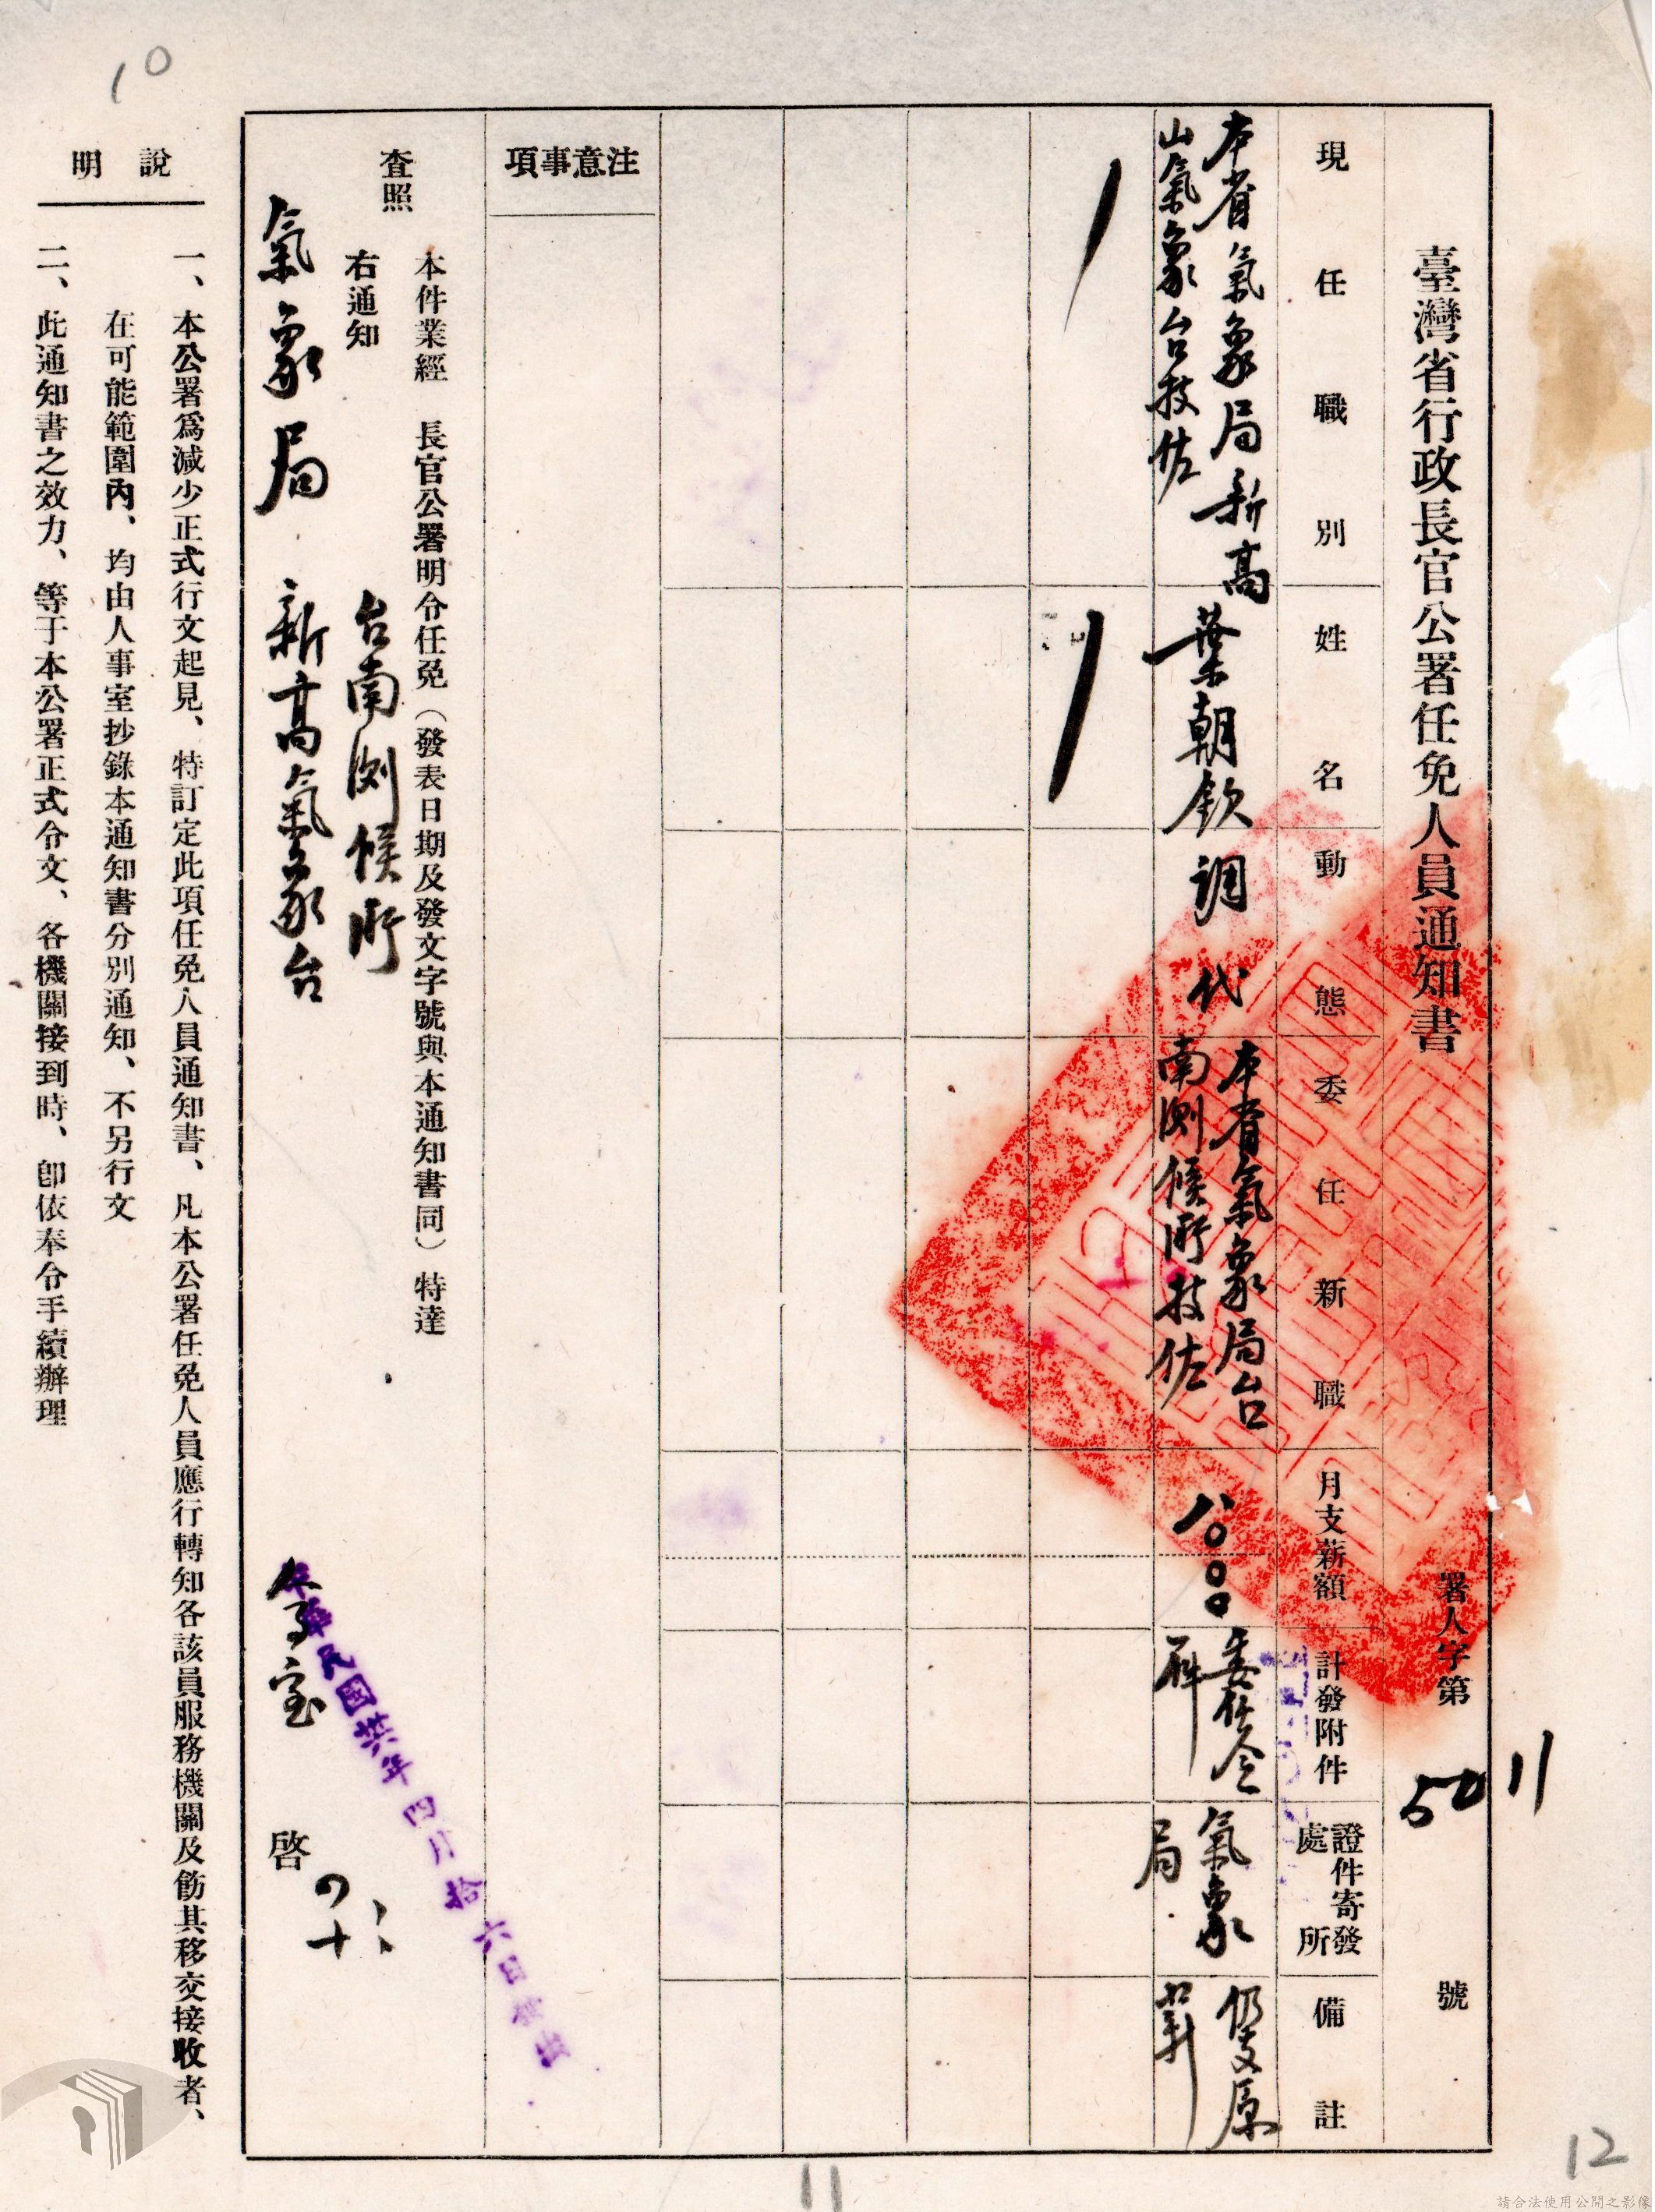 臺灣省行政長官公署任免人員通知書
署人字第
號
現任職別
姓名
動態
委任新職
月支薪額
計發附件
證件寄發處所
備註
本省氣象局新高
山氣象台技佐
葉朝欽
調代
本省氣象局台
南測候所技佐
八〇〇〇
委任令
氣象
局
仍支原
薪
注意事項
本件業經 長官公署明令任免（發表日期及發文字號與本通知書同）特達
查照
右通知
台南測候所
氣象局 新高氣象台
啓
中華民國卅六年四月拾六日發出
說明
一、本公署爲減少正式行文起見、特訂定此項任免人員通知書、凡本公署任免人員應行轉知各該員服務機關及飭其移交接收者、
在可能範圍內、均由人事室抄錄本通知書分別通知、不另行文
二、此通知書之效力、等于本公署正式令文、各機關接到時、卽依奉令手續辦理
10
11
12
請合法使用公開之影像